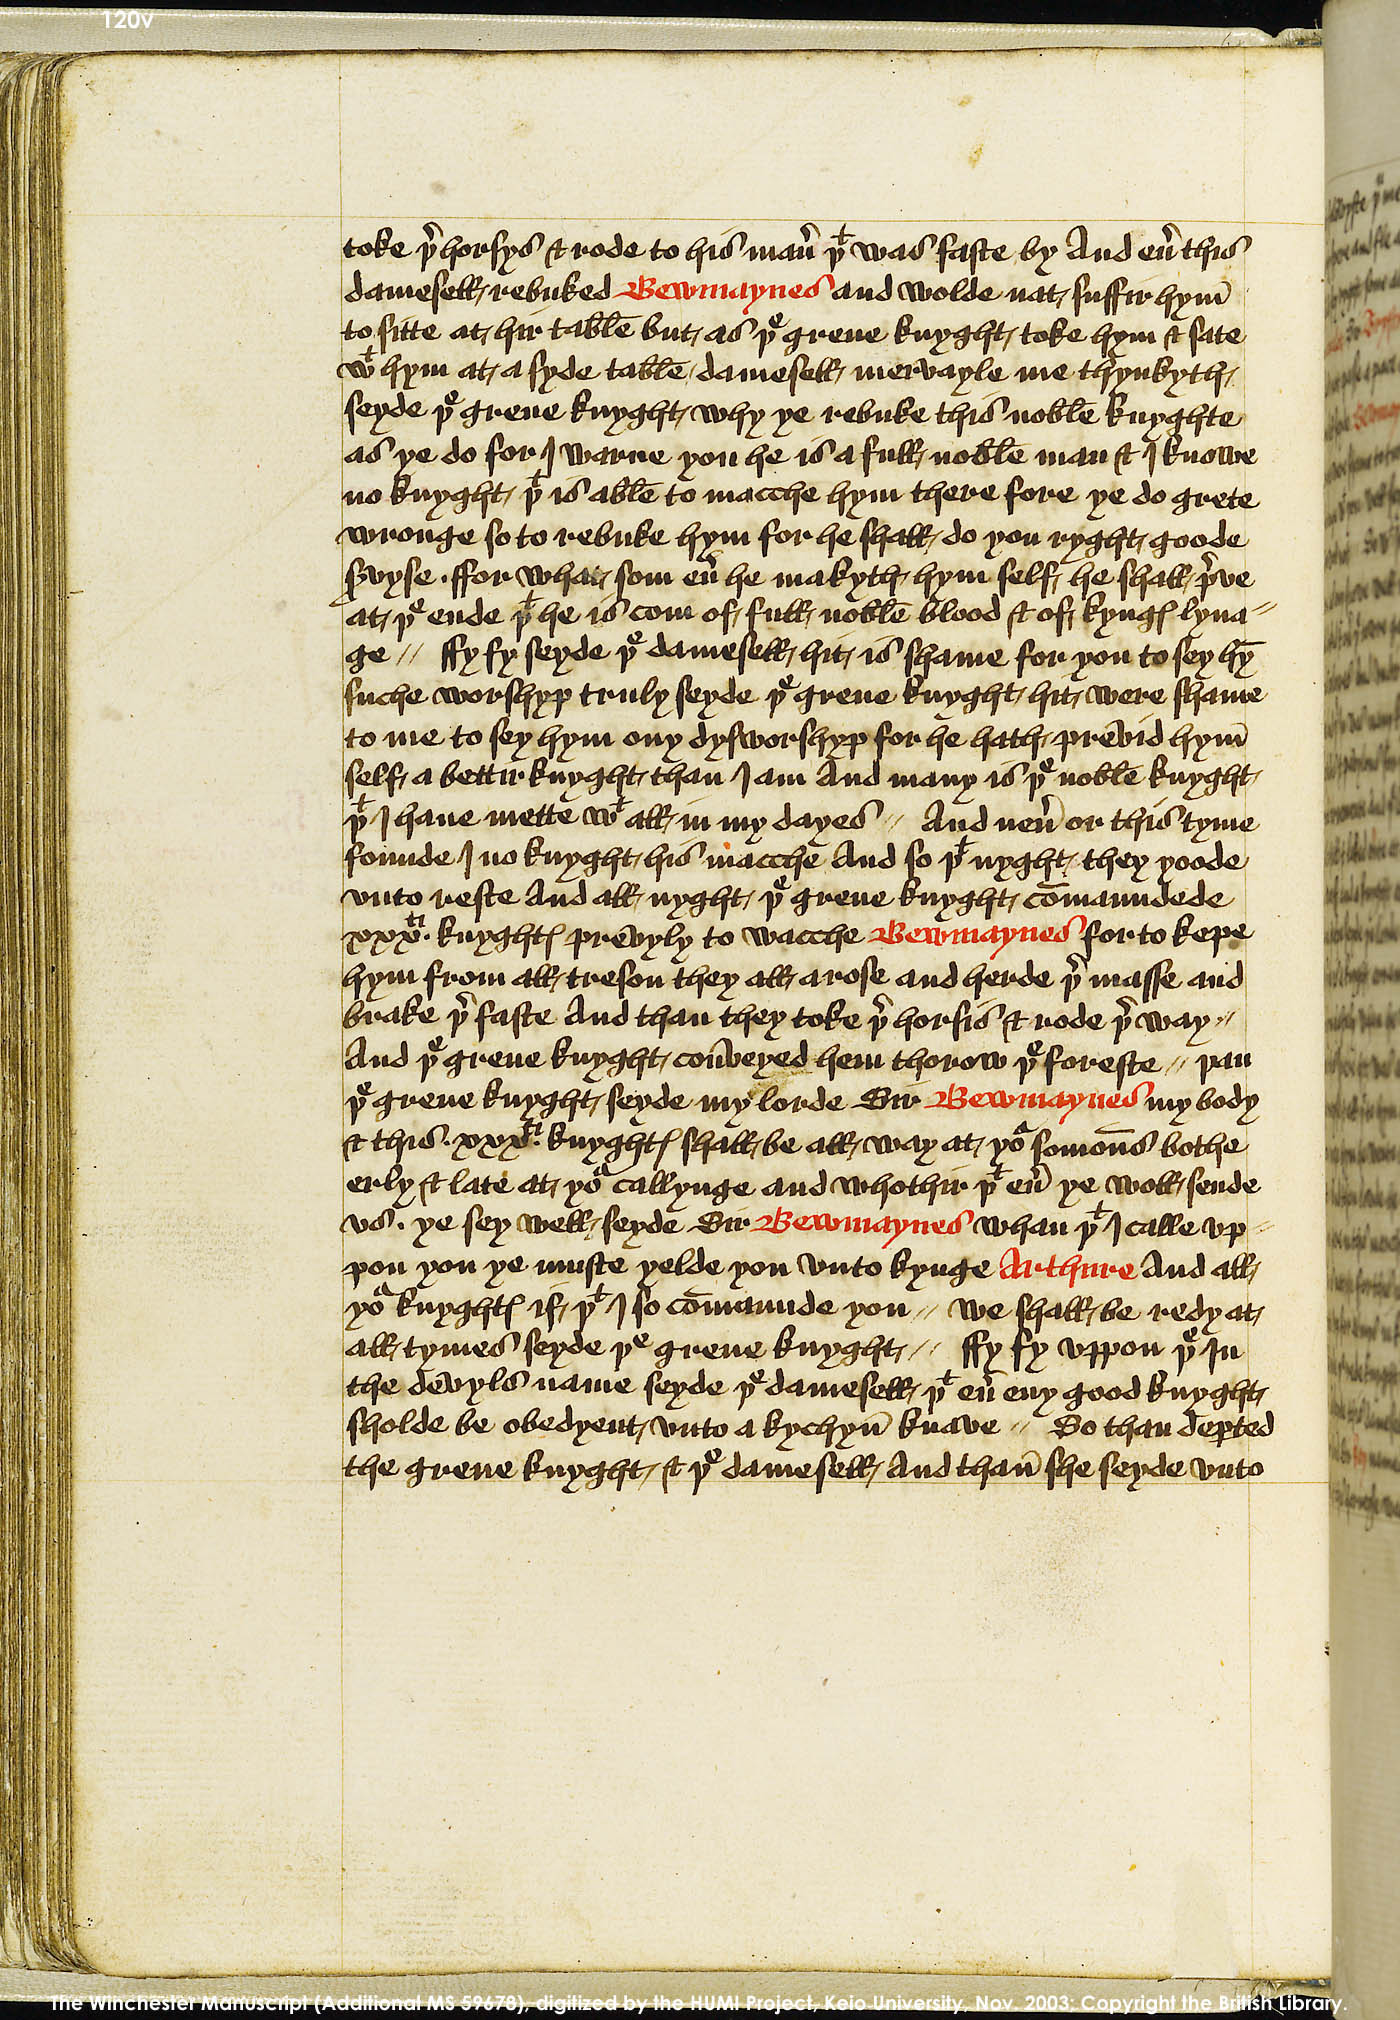 120v
toke þr̄ horsys & rode to his man̄ þᵗ was faste by And eu̾ this
damesell rebuked Bewmaynes and wolde nat suffir hym̄
to sitte at hir tablē but as þᵉ grene knyght toke hym & sate
wᵗ hym at a syde tablē damesell mervayle me thynkyth
seyde þᵉ grene knyght why ye rebuke this noblē knyghte
as ye do for I warne you he is a full noblē man & I knowe
no knyght þᵗ is ablē to macche hym there fore ye do grete
wronge so to rebuke hym for he shall do you ryght goode
s̾vyse · ffor what som eu̾ he makyth hym self he shall p̾ve
at þᵉ ende þᵗ he is com of full noblē blood & of kyngꝭ lyna〃
ge 〃 ffy fy seyde þᵉ damesell hit is shame for you to sey hȳ
suche worshyp truly seyde þᵉ grene knyght hit were shame
to me to sey hym ony dysworshyp for he hath prēvid hym̄
self a bettir knyght than I am And many is þᵉ noblē knyght
þᵗ I haue mette wᵗ all in my dayes 〃 And neu̾ or this tyme
founde I no knyght his macche And so þᵗ nyght they yoode
vnto reste And all nyght þᵉ grene knyght cōmaundede
xxxᵗⁱ · knyghtꝭ prēvyly to wacche Bewmaynes for to kepe
hym from all treson they all a rose and herde þr̄ masse and
brake þr̄ faste And than they toke þr̄ horsis & rode þr̄ way 〃
And þᵉ grene knyght con̄veyed hem thorow þᵉ foreste 〃 þan
þᵉ grene knyght seyde my lorde Sir Bewmaynes my body
& this · xxxᵗⁱ · knyghtꝭ shall be all way at yoᵃ somon̄s bothe
erly & late at yoᵃ callynge and whothir þᵗ eu̾ ye woll sende
vs · ye sey well seyde Sir Bewmaynes whan þᵗ I calle vp〃
pon you ye muste yelde you vnto kynge Arthure And all
yoᵃ knyghtꝭ if þᵗ I so cōmaunde you 〃 we shall be redy at
all tymes seyde þᵉ grene knyght 〃 ffy fy vppon þᵉ In
the dēvyls name seyde þᵉ damesell þᵗ eu̾ eny good knyght
sholde be obedyent vnto a kychyn̄ knave 〃 So than dep̱ted
the grene knyght & þᵉ damesell And than̄ she seyde vnto
The Winchester Manuscript (Additional MS 59678), digitized by the HUMI Project, Keio University, Nov. 2003; Copyright the British Library.